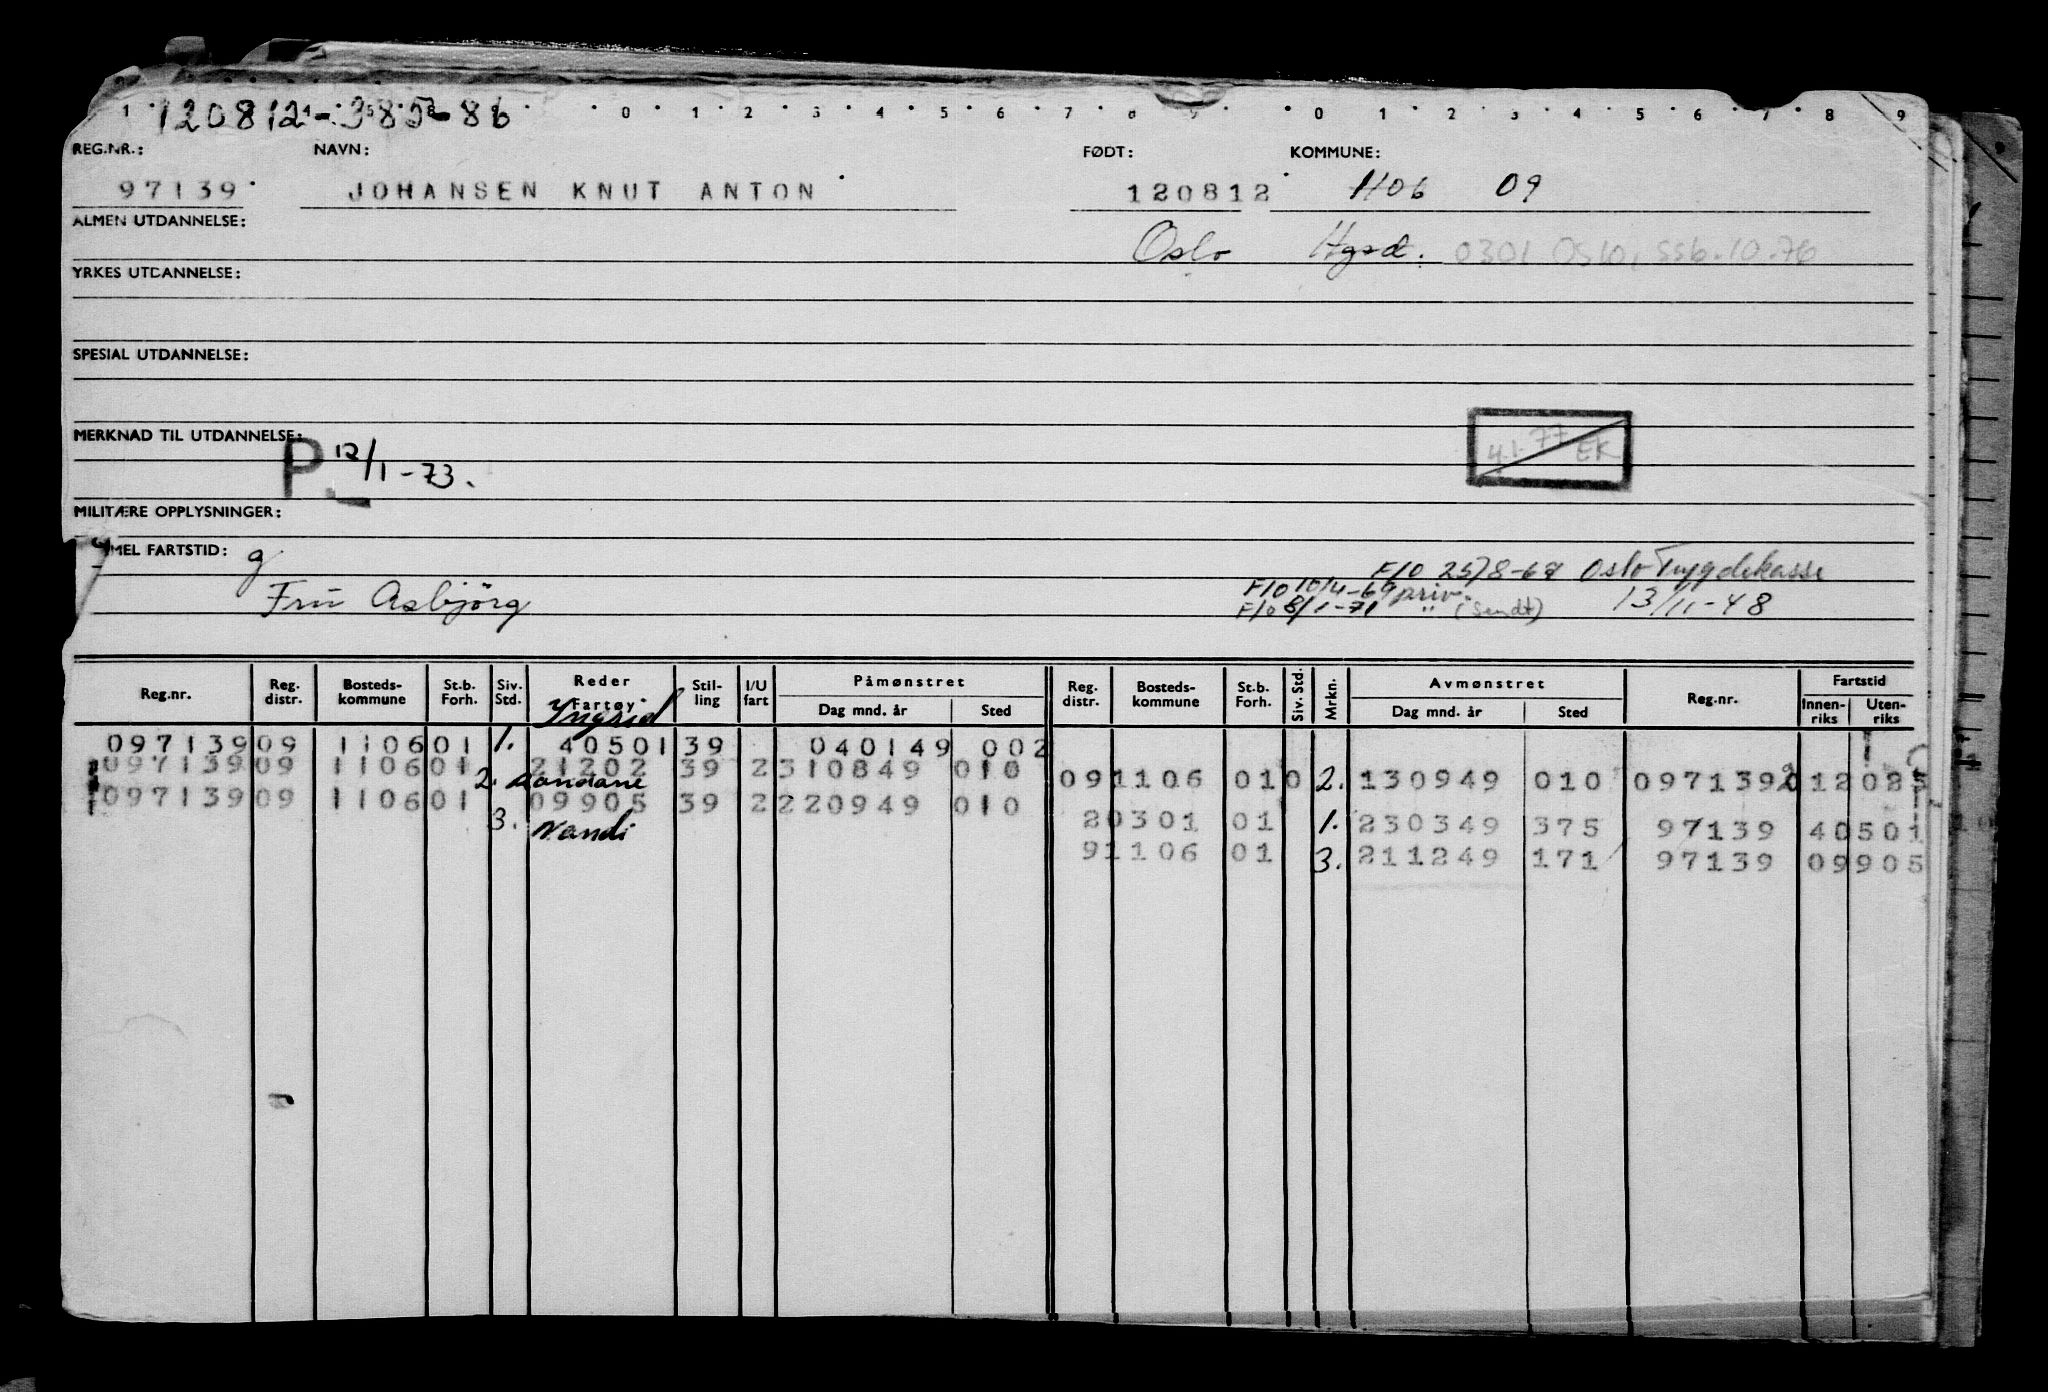 120812-38586
1 0 1 2 3 4 5 6 7 8 9 0 1 2 3 4 5 6 7 8 9
REG.NR.: NAVN: FØDT: KOMMUNE:
97139 JOHANSEN KNUT ANTON 120812 1106 09
ALMEN UTDANNELSE: Oslo Hgsd. 0301 Oslo, SSB.10.76
YRKES UTDANNELSE:
SPESIAL UTDANNELSE:
MERKNAD TIL UTDANNELSE:
P 12/1-73.
4.1.77 EK
MILITÆRE OPPLYSNINGER:
MEL FARTSTID: g
F/O 25/8-67 Oslo Trygdekasse
F/O 10/4-69 priv.
Fru Asbjörg
F/O 8/1-71 " (Sendt) 13/11-48
Reg.nr. Reg. distr. Bosteds-kommune St.b. Forh. Siv. Std. Reder Fartøy Stil-ling I/U fart Påmønstret Dag mnd. år Sted Reg. distr. Bosteds-kommune St.b. Forh. Siv. Std. Mrkn. Avmønstret Dag mnd. år Sted Reg.nr. Fartstid Innen-riks Uten-riks
Yngrid
097139 09 1106 01 1. 40501 39 040149 002
097139 09 1106 01 21202 39 2 310849 010
2. 091106 010 2. 130949 010 097139
097139 09 1106 01 09905 39 2 220949 010
3. Nandi
20301 01 1. 230349 375 97139 40501
91106 01 3. 211249 171 97139 09905